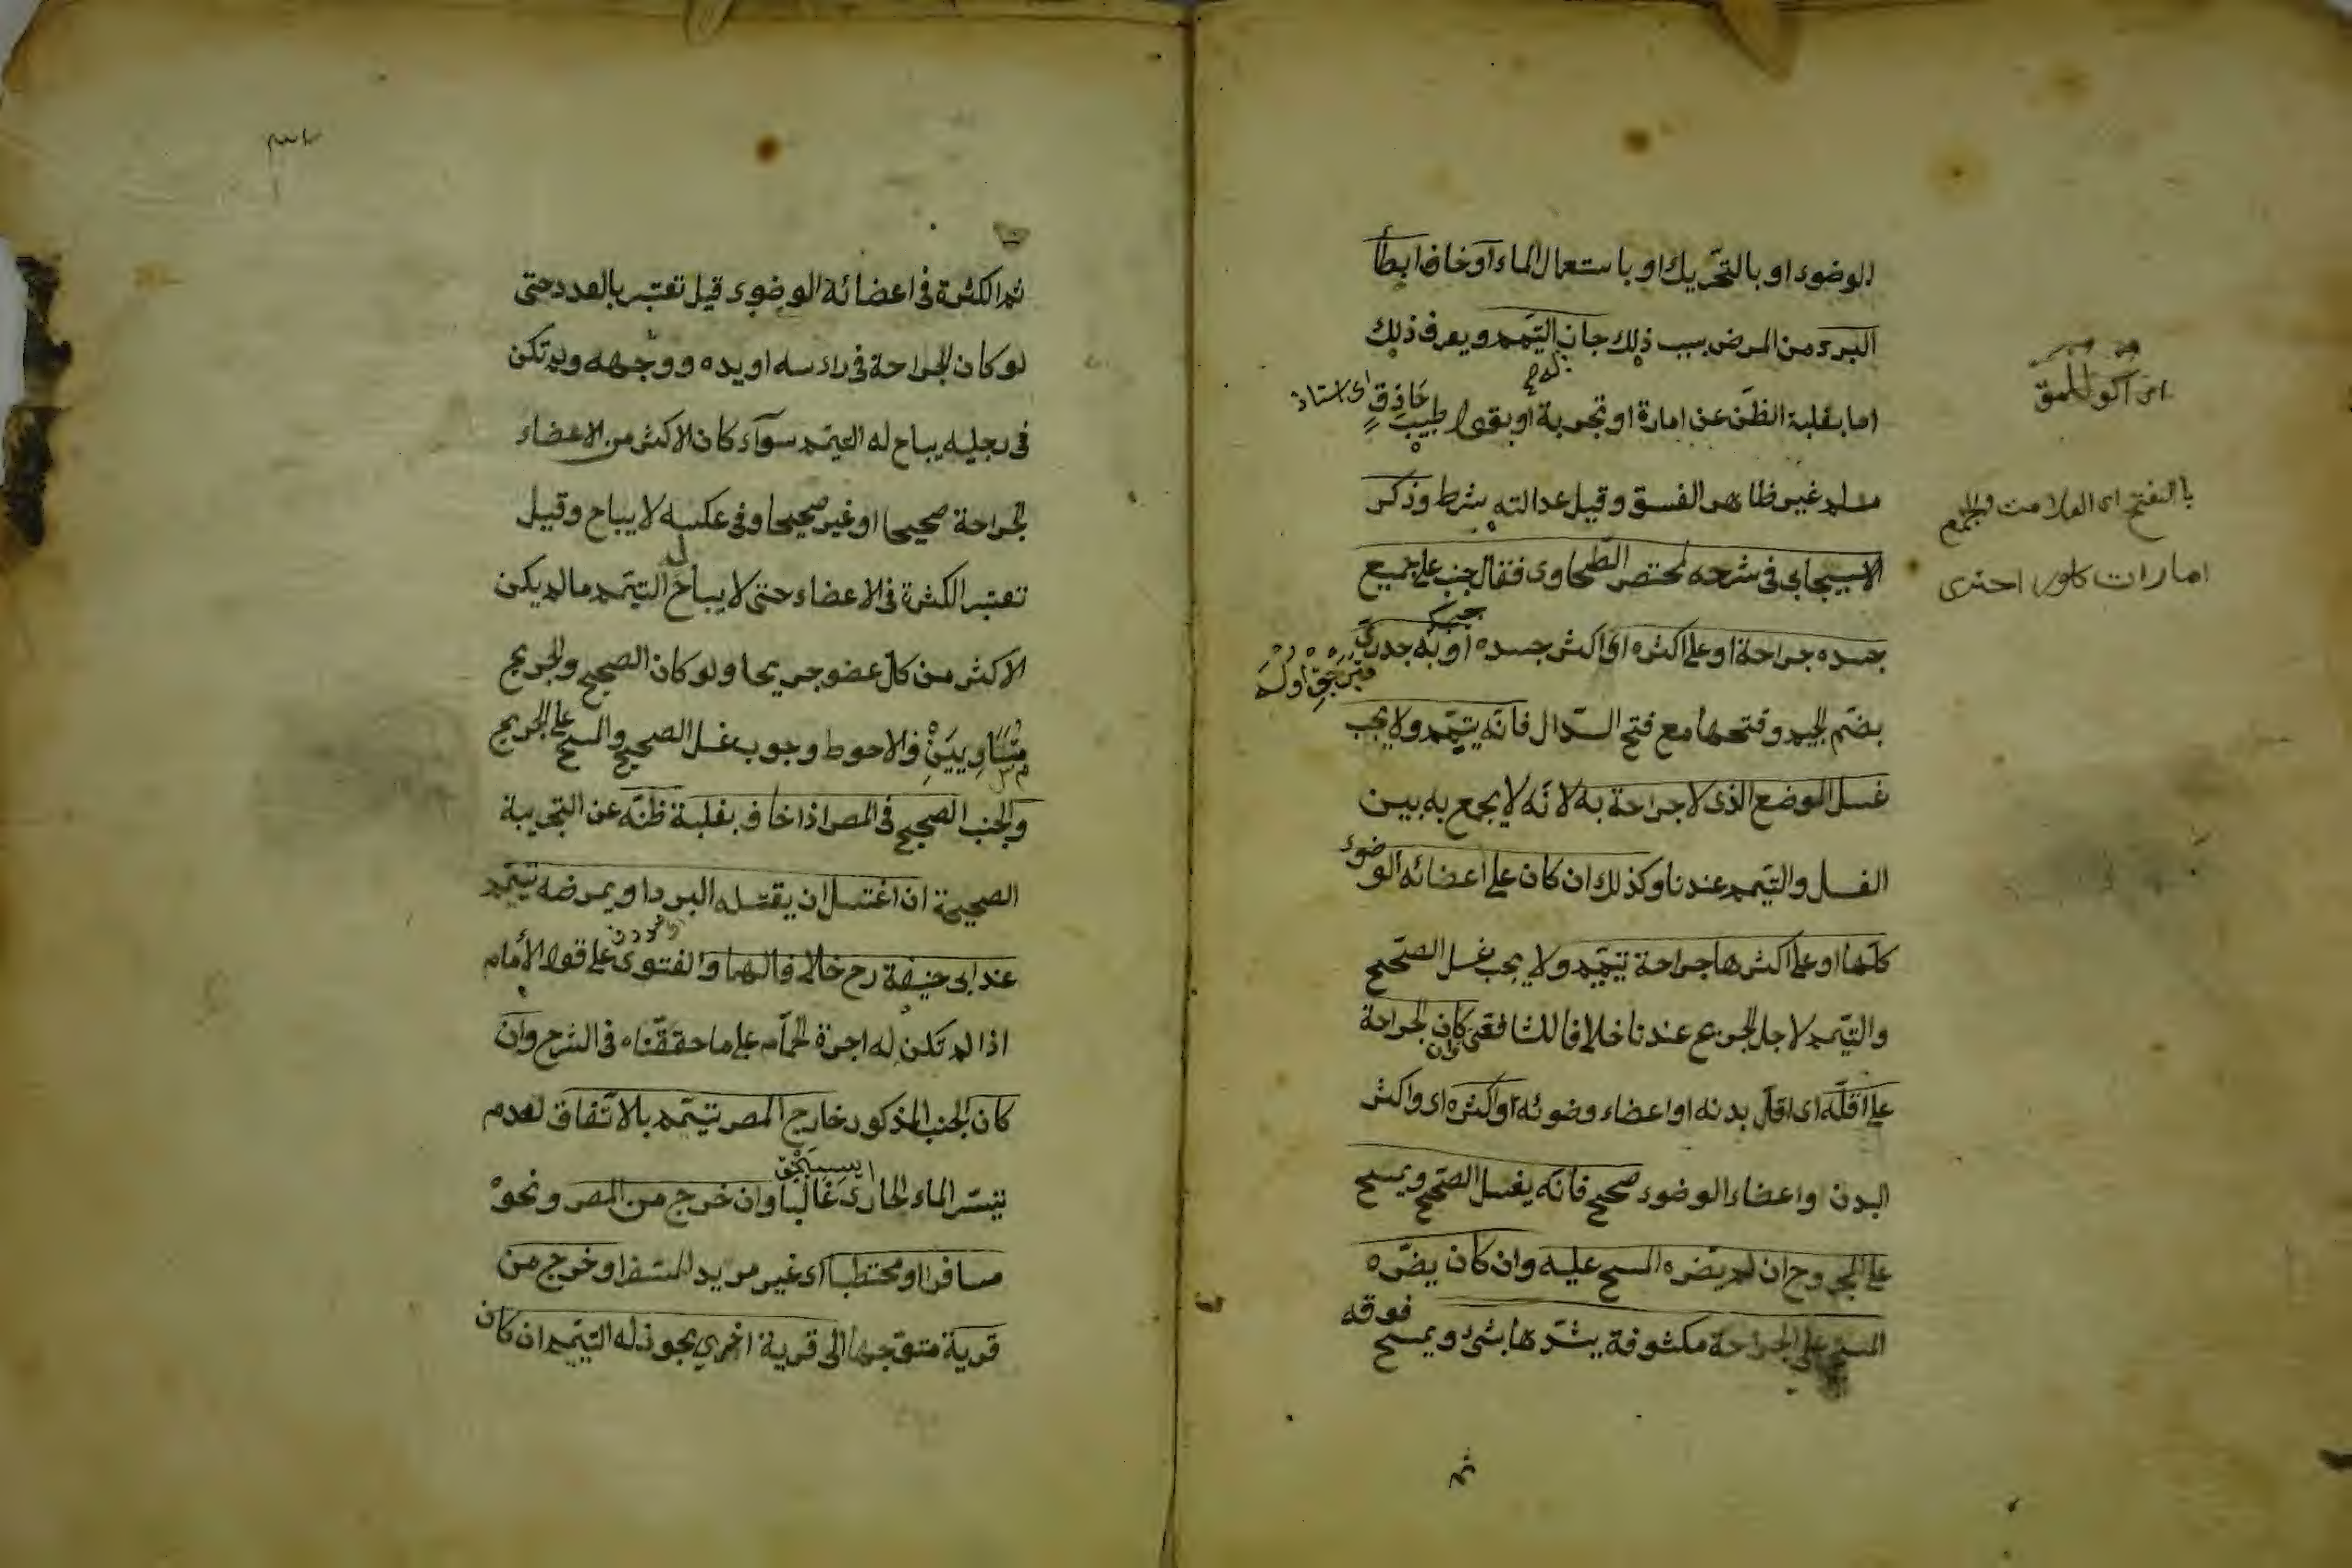 الوضوء او بالتحّريك او باستعمال الماء او خاف ابطأ
البرء من المرض بسبب ذلك جاز التيّمم ويعرف ذلك
اما بغلبة الظّن عن امارة او تجربة او بقول طبيبٍ حَاذِقٍ اى استاذ
مسلم غير ظاهر الفسق وقيل عدالته شرط وذكر
الاسبيجابي في شرحه لمختصر الطّحاوى فقال جنب على جميع
جسده جراحة او على اكثره اى اكثر جسده او به جدرىّ
بضّم الجيم وفتحها مع فتح الدّال فانّه يتيّمم ولا يجب
غسل الموضع الذى لا جراحة به لانّه لا يجمع به بين
الغسل والتيّمم عندنا وكذلك ان كان على اعضائه الوضوء
كلّها او على اكثرها جراحة تيّمم ولا يجب غسل الصّحيح
والتيّمم لاجل الجريح عندنا خلافا للشافعى وان كان الجراحة
على اقلّه اى اقلّ بدنه او اعضاء وضوئه واكثره اى واكثر
البدن واعضاء الوضوء صحيح فانّه يغسل الصّحيح ويمسح
على المجروح ان لم يضّره المسح عليه وان كان يضّره
المسح على الجراحة مكشوفة يشدّها بشئ ويمسح فوقه
ثم
بالفتح اى العلامت والجمع
امارات
ثم الكثرة في اعضائة الوضوء قيل تعتبر بالعدد حتى
لو كان الجراحة في رأسه او يده ووجهه ولم تكن
في رجليه يباح له التيّمم سوآء كان الاكثر من الاعضاء
الجراحة صحيحا او غير صحيحا وفي عكسه لا يباح وقيل
تعتبر الكثرة في الاعضاء حتى لا يباح التيّمم ما لم يكن
الاكثر من كلّ عضو جريحا ولو كان الصحيح والجريح
متساوِيَيْنِ فالاحوط وجوب غسل الصحيح والمسح على الجريح
والجنب الصحيح في المصر اذا خاف بغلبة ظنّه عن التجربة
الصحيحة ان اغتسل ان يقتله البرد او يمرضه تيّمم
عند ابى حنيفة رح خلافا لهما والفتوى على قول الأمام
اذا لم تكن له اجرة الحمّام على ما حققّناه في الشرح وان
كان الجنب المذكور خارج المصر تيّمم بالاتّفاق لعدم
تيسّر الماء الحارّ غالبا وان خرج من المصر ونحوْ
مسافرا او محتطبا اى غير مريد للسفر او خرج من
قرية متوّجها الى قرية اخرى يجوز له التيّمم ان كان